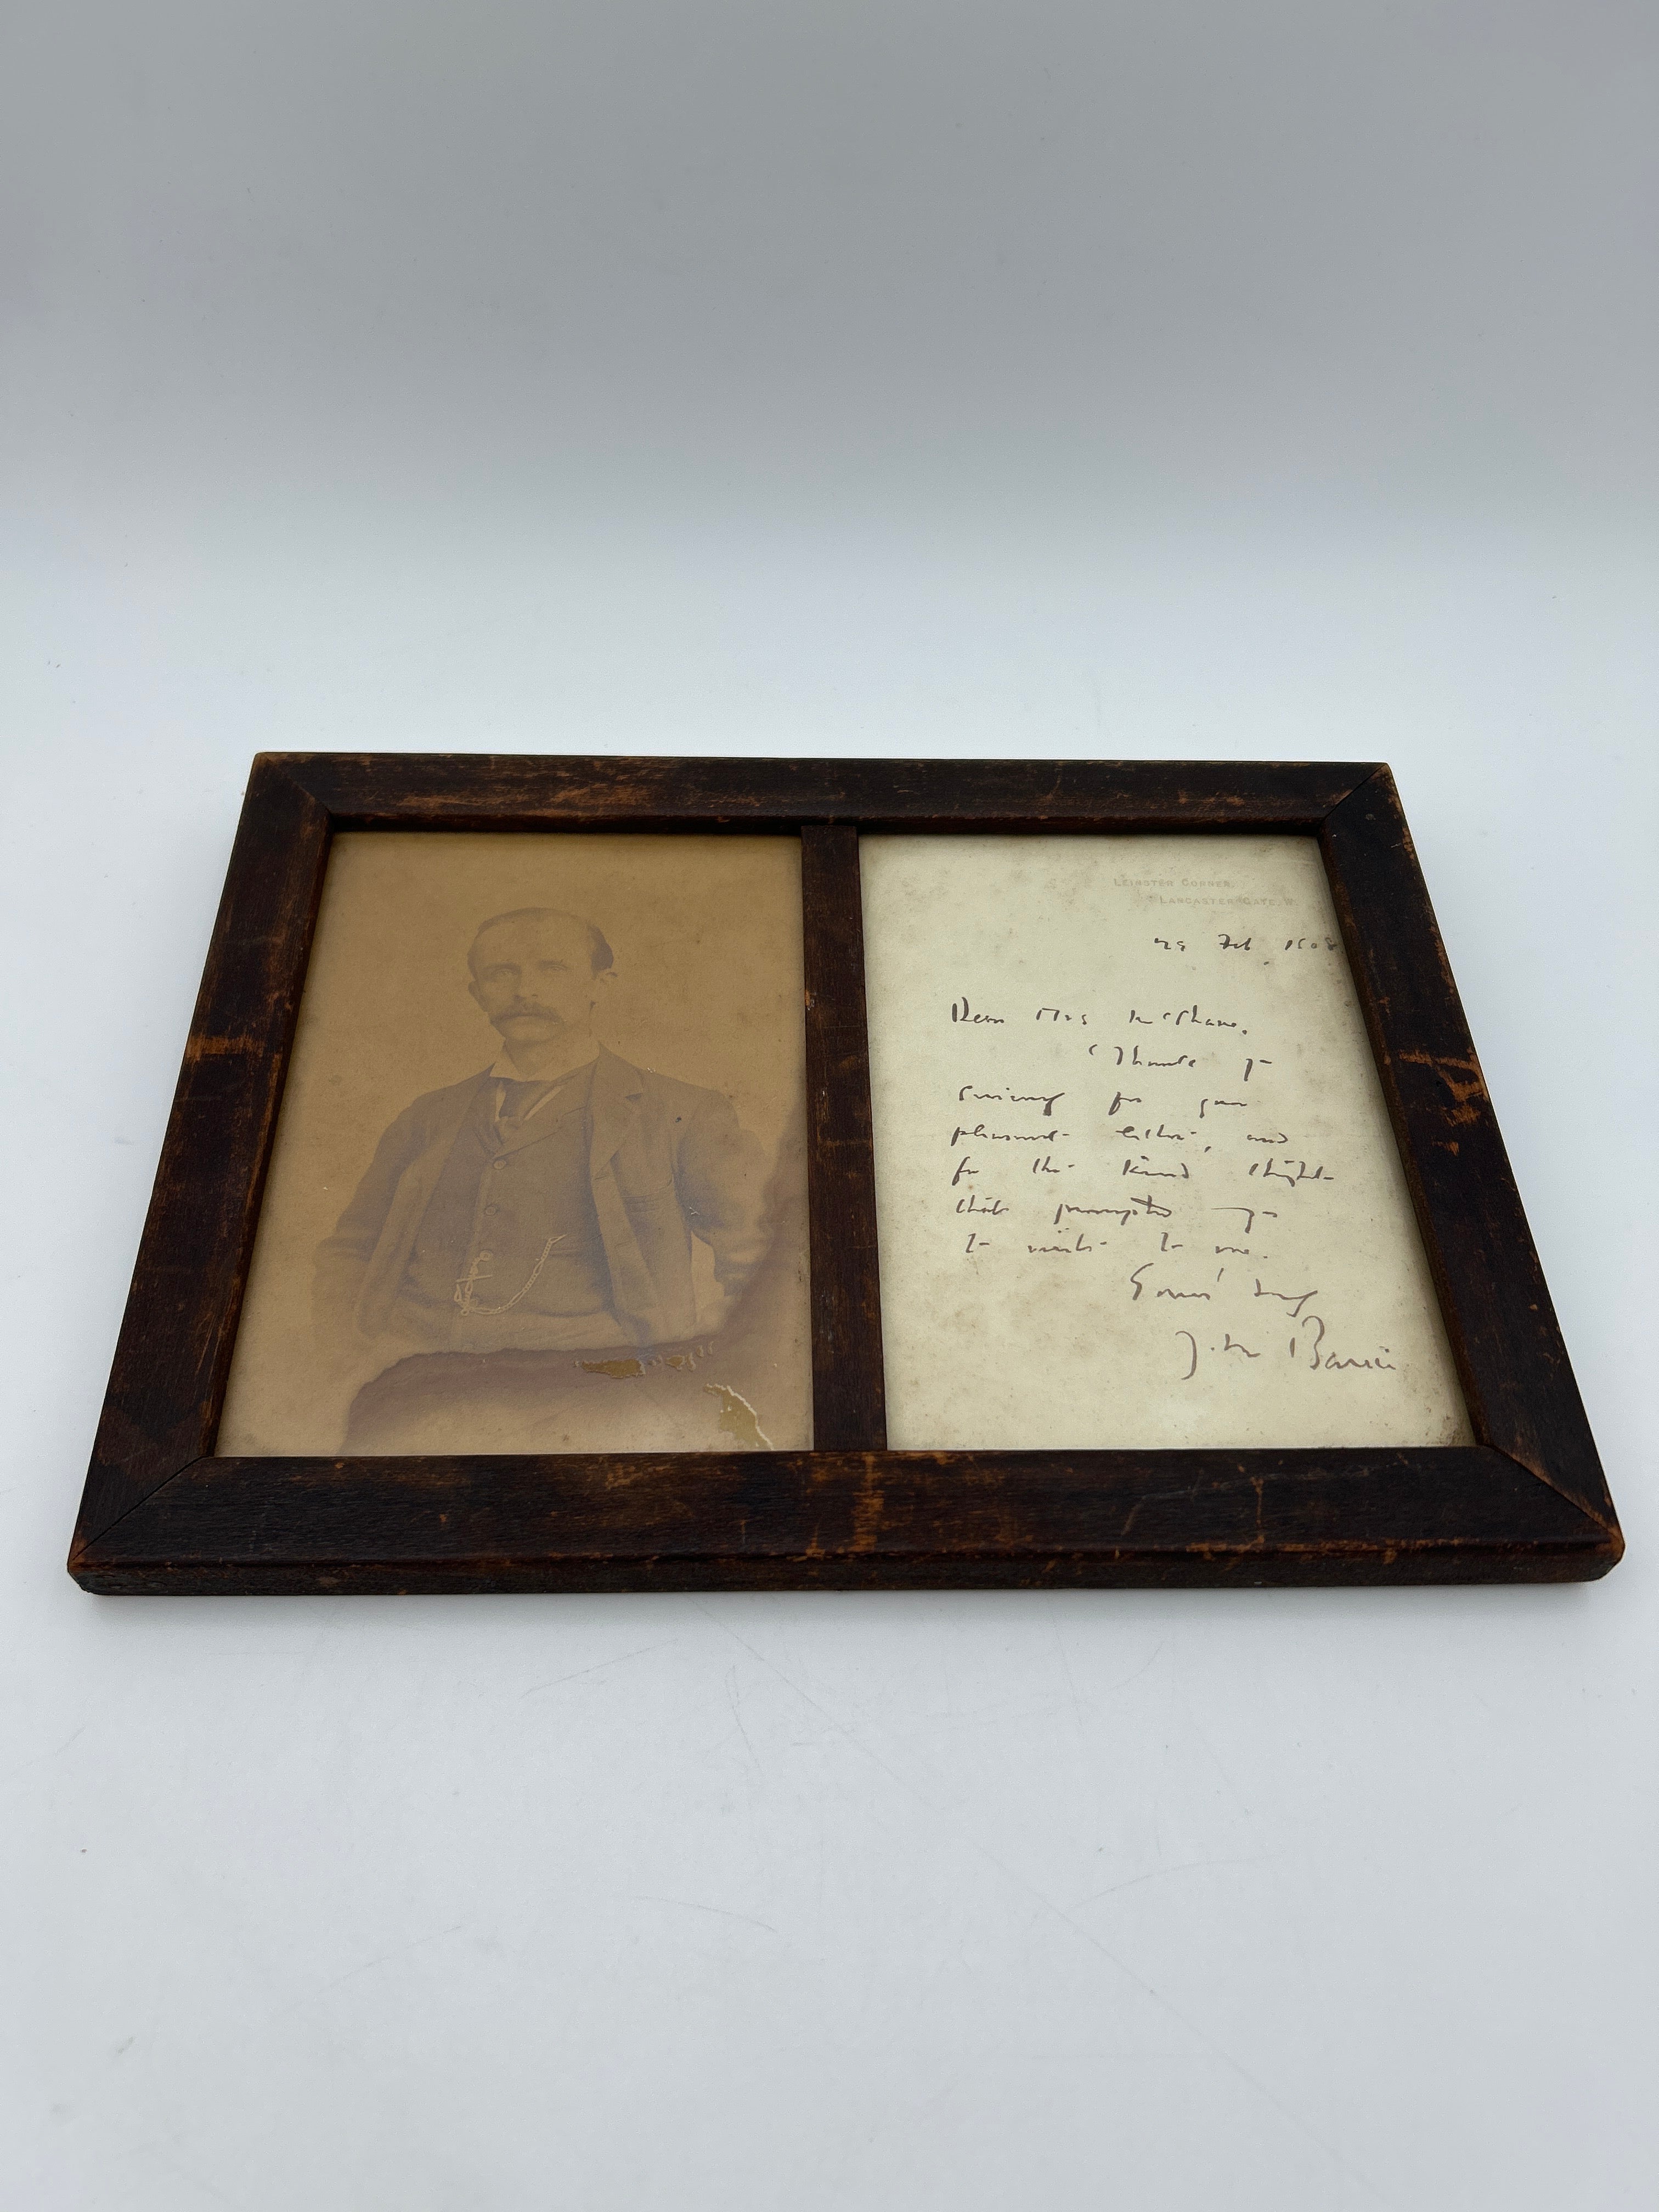 LEINSTER CORNER,
LANCASTER GATE. W.
29 Feb. 1908
Dear Mrs
Thank you
sincerely for your
pleasant letter, and
for the kind thought
that prompted you
to write to me.
Yours truly
J. M. Barrie